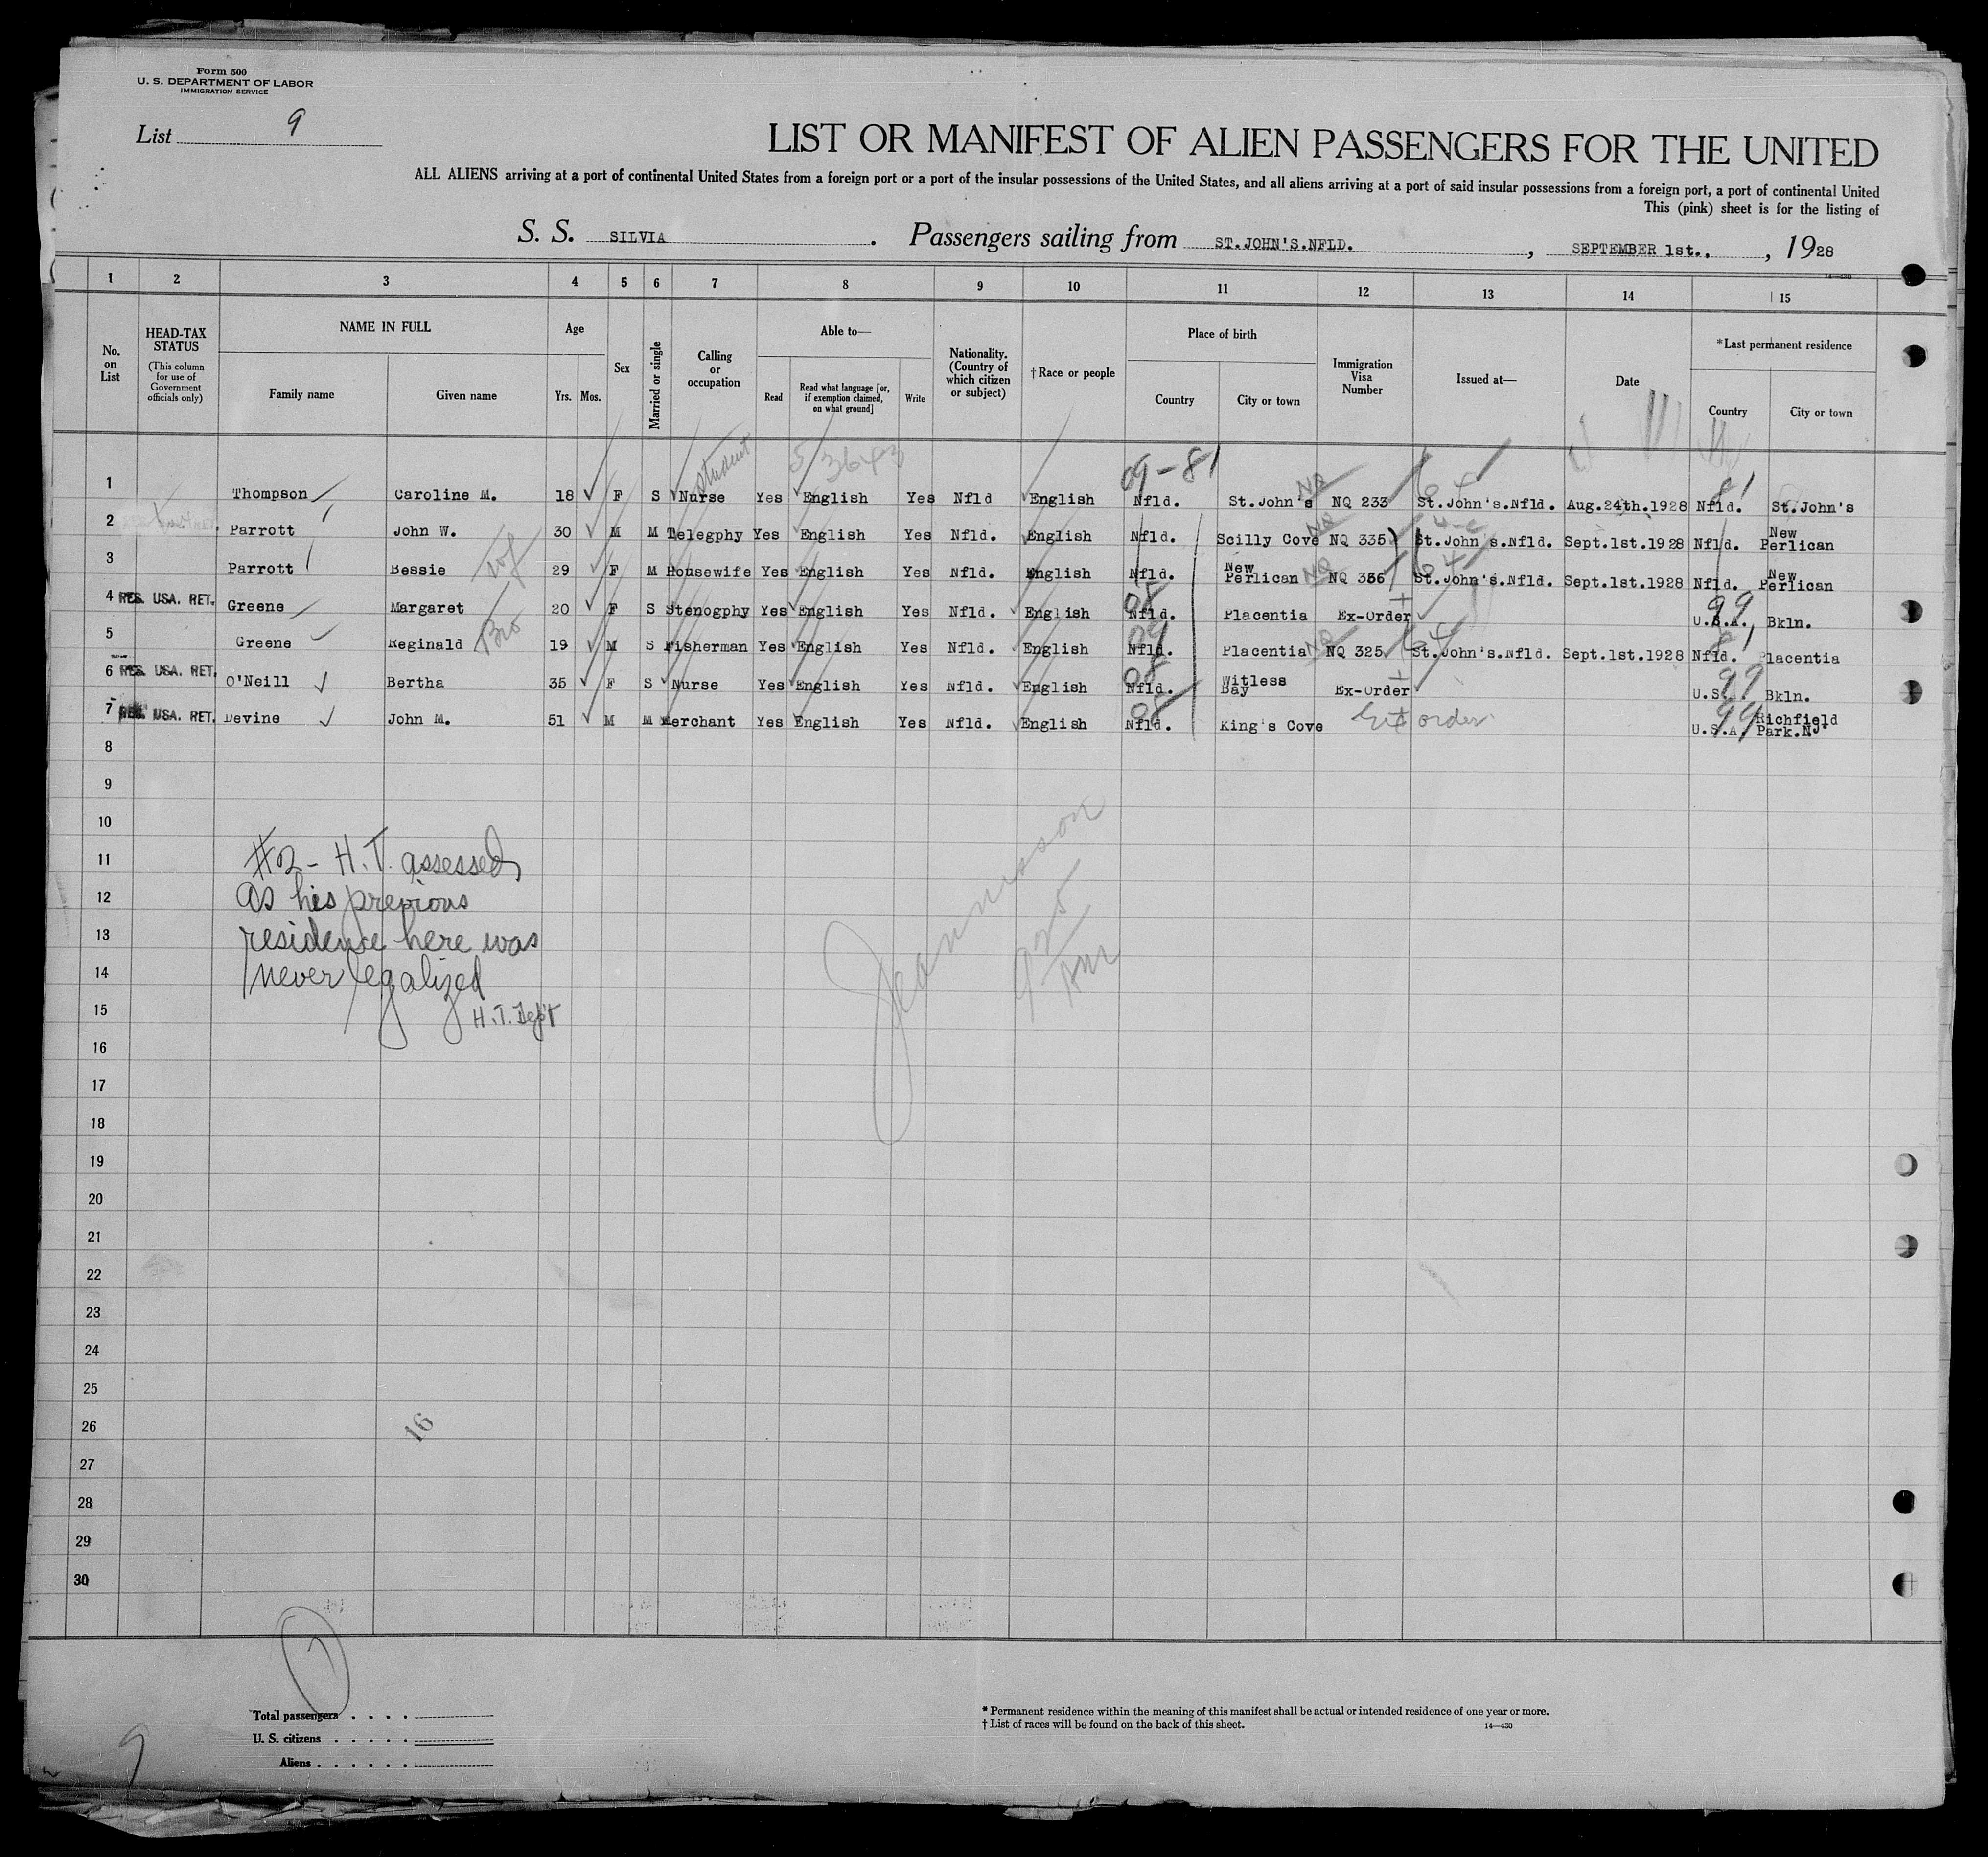 Form 500
U. S. DEPARTMENT OF LABOR
IMMIGRATION SERVICE
List 9
LIST OR MANIFEST OF ALIEN PASSENGERS FOR THE UNITED
ALL ALIENS arriving at a port of continental United States from a foreign port or a port of the insular possessions of the United States, and all aliens arriving at a port of said insular possessions from a foreign port, a port of continental United
This (pink) sheet is for the listing of
S. S. SILVIA. Passengers sailing from ST.JOHN'S.NFLD., SEPTEMBER 1st.., 1928
14—430
1 2 3 4 5 6 7 8 9 10 11 12 13 14 15
No. on List
HEAD-TAX STATUS
(This column for use of Government officials only)
NAME IN FULL
Family name
Given name
Age
Yrs. Mos.
Sex
Married or single
Calling or occupation
Able to—
Read
Read what language [or, if exemption claimed, on what ground]
Write
Nationality. (Country of which citizen or subject)
† Race or people
Place of birth
Country
City or town
Immigration Visa Number
Issued at—
Date
*Last permanent residence
Country
City or town
student 5/3643 09-81
1 Thompson Caroline M. 18 F S Nurse Yes English Yes Nfld English Nfld. St.John's NQ NQ 233 64 St.John's.Nfld. Aug.24th.1928 81 Nfld. St.John's
2 Parrott John W. 30 M M Telegphy Yes English Yes Nfld. English Nfld. Scilly Cove NQ NQ 335 St.John's.Nfld. Sept.1st.1928 Nfld. New Perlican
3 Parrott Bessie wf 29 F M Housewife Yes English Yes Nfld. English Nfld. New Perlican NQ NQ 336 64 St.John's.Nfld. Sept.1st.1928 Nfld. New Perlican
4 RES. USA. RET. Greene Margaret 20 F S Stenogphy Yes English Yes Nfld. English 08 Nfld. Placentia Ex-Order 99 U.S.A. Bkln.
5 Greene Reginald Bro 19 M S Fisherman Yes English Yes Nfld. English 09 Nfld. Placentia NQ NQ 325 64 St.John's.Nfld. Sept.1st.1928 81 Nfld. Placentia
6 RES. USA. RET. O'Neill Bertha 35 F S Nurse Yes English Yes Nfld. English 08 Nfld. Witless Bay Ex-Order 99 U.S.A. Bkln.
7 RES. USA. RET. Devine John M. 51 M M Merchant Yes English Yes Nfld. English 08 Nfld. King's Cove Ex order 99 U.S.A. Richfield Park.NJ.
8
9
10
11 #2 - H.T. assessed
12 as his previous
13 residence here was
14 never legalized
15 H.T. Dep't
16
17
18
19
20
21
22
23
24
25
26 16
27
28
29
30
7
Total passengers
U. S. citizens
Aliens
9
* Permanent residence within the meaning of this manifest shall be actual or intended residence of one year or more.
† List of races will be found on the back of this sheet.
14—430